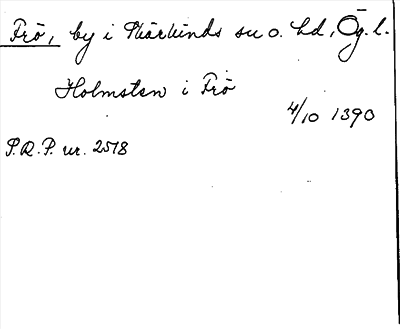 Frö, by i Skärkinds sn o. hd, Ög. l.
Holmsten i Frö
4/10 1390
P.R.P. nr. 2518